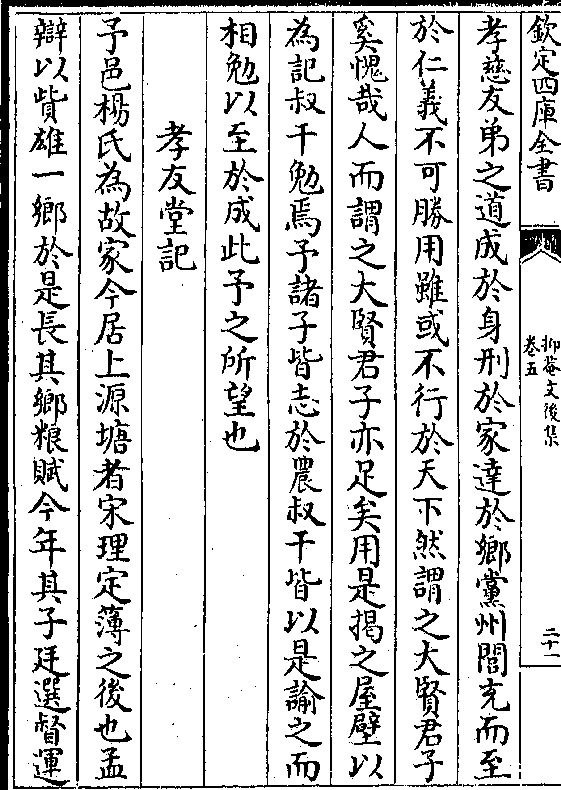 欽定四庫全書
抑菴文後集
卷五
二十一
孝慈友弟之道成於身刑於家達於鄉黨州閭充而至
於仁義不可勝用雖或不行於天下然謂之大賢君子
奚愧哉人而謂之大賢君子亦足矣用是揭之屋壁以
為記叔干勉焉予諸子皆志於農叔干皆以是諭之而
相勉以至於成此予之所望也
孝友堂記
予邑楊氏為故家今居上源塘者宋理定簿之後也孟
辯以貲雄一鄉於是長其鄉粮賦今年其子廷選督運